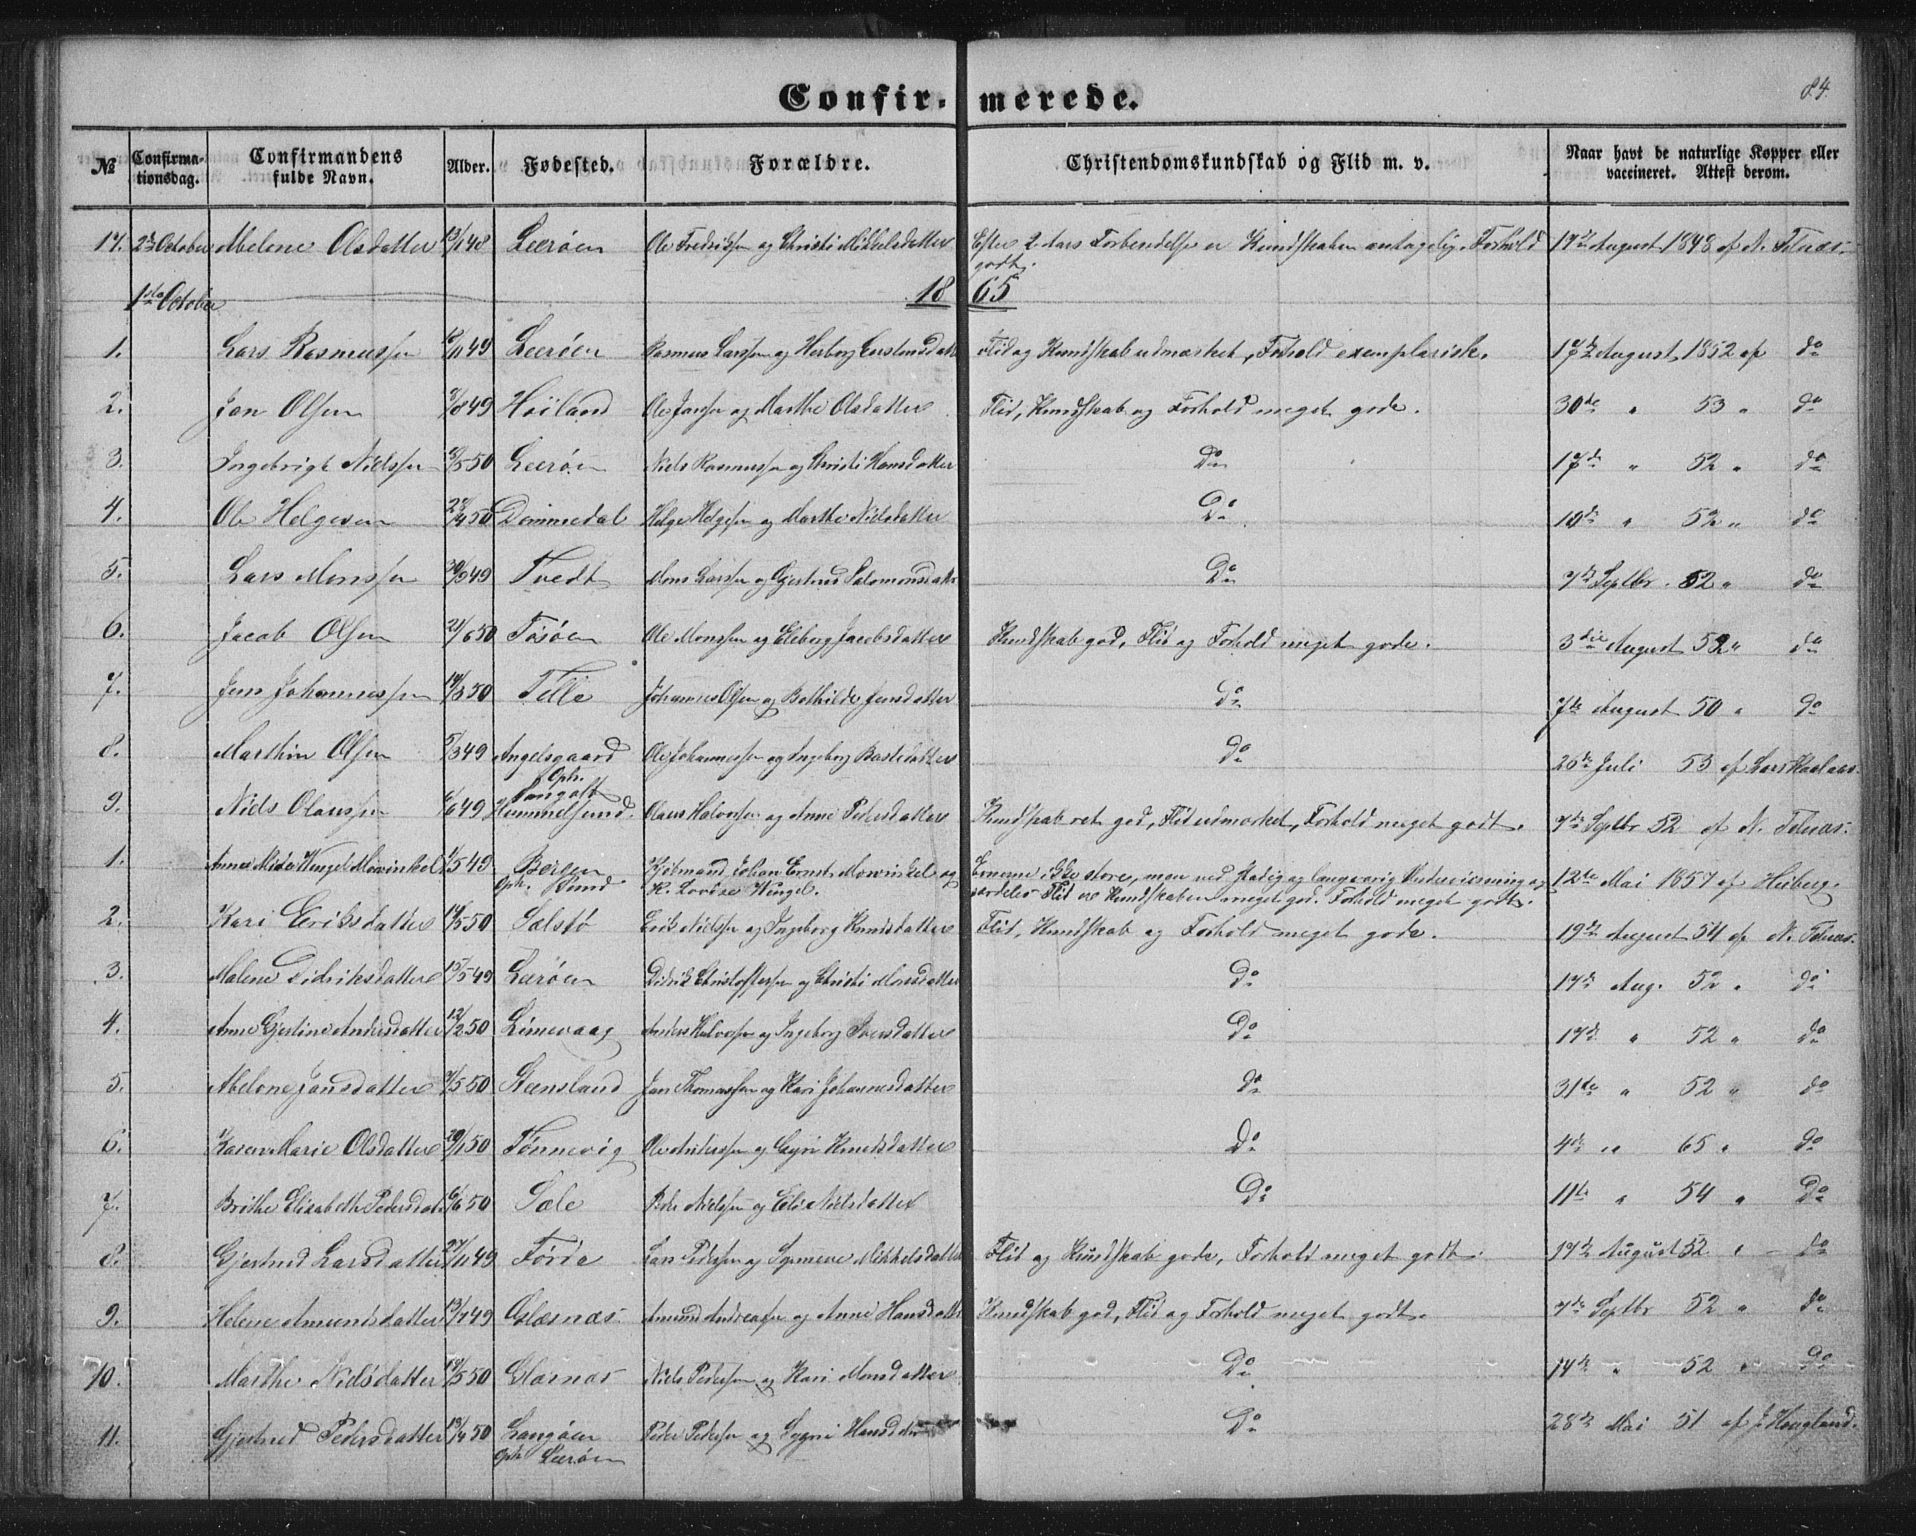 84.
Confirmerede.
№ Confirmationsdag. Confirmandens fulde Navn. Alder. Fødested. Forældre. Christendomskundskab og Flid m. v. Naar havt de naturlige Kopper eller vaccineret. Attest derom.
17. 2den October Malene Olsdatter 13/1 48 Leerøen Ole Fredriksen og Christi Mikkelsdatter Efter 2 Aars Forberedelse er Kundskaben antagelig. Forhold godt. 17de August 1848 af N. Telnæs.
1ste October 1865
1. Lars Rasmussen /11 49 Leerøen Rasmus Larssen og Herborg Flid og Kundskab udmærket, Forhold exemplarisk. 17de August 1852 af do
2. Jan Olsen /8 49 Høiland Ole Janssen og Marthe Olsdatter Flid, Kundskab og Forhold meget gode. 30de " 53 " do
3. Ingebrigt Nielssen /5 50 Leerøen Niels Rasmussen og Christi Hansdatter Do 17de " 52 " do
4. Ole Helgesen 28/4 50 Dommedal Helge Helgesen og Marthe Nielsdatter Do 10de " 52 " do
5. Lars Monssen 30/9 49 Tvedt Mons Larssen og Gjertrud Salomonsdatter Do 7de Septbr. 52 " do
6. Jacob Olsen 21/6 50 Tøsøen Ole Monssen og Eleborg Jacobsdatter Kundskab god, Flid og Forhold meget gode. 3die August 52 " do
7. Jens Johannessen 14/3 50 Telle Johannes Olsen og Bothilde Jensdatter Do 7de August 50 " do
8. Marthin Olsen /3 49 Angelsgaard Ole Johannessen og Ingeborg do 26de Juli 53 af Lars
Oph. Pangolt
9. Niels Olaussen /6 49 Hummelsund. Olaus Halvorsen og Anne Pedersdatter Kundskab ret god, Flid udmærket, Forhold meget godt. 7de Septbr 52 af N. Telnæs.
1. Anne Wengel Mowinkel /5 49 Bergen Kjøbmand Johan Ernst Mowinkel og Evnerne ikke store, men ved stadig og langvarig Underviisning og 12te Mai 1857 af Heiberg.
Oph. Sund K. Lovise Wingel. særdeles Flid er Kundskaben meget god. Forhold meget godt.
2. Kari Eriksdatter 14/5 50 Selstø Erik Nielssen og Ingeborg Knudsdatter Flid, Kundskab og Forhold meget gode. 19de August 54 af N. Telnæs.
3. Malene Didriksdatter 15/5 49 Lerøen Didrik Christoffersen og Christi Monsdatter Do 17de Aug. 52 " do
4. Anne Gjertine Andersdatter 12/2 50 Limevaag Anders Halvorsen og Ingeborg Iversdatter Do 17de " 52 " do
5. Abelone Jansdatter /5 50 Steensland Jan Thomassen og Kari Johannesdatter do 31te " 52 " do
6. Karen Marie Olsdatter 20/1 50 Tønnevig Ole Anderssen og Gyri Knudsdatter Do 4de " 65 " do
7. Brithe Elisabeth Pedersdatter 6/6 50 Sele Peder Nielssen og Eli Nielsdatter Do 11te " 54 " Do
8. Gjertrud Larsdatter 27/11 49 Førde Lars Pedersen og Synneve Mikkelsdatter Flid og Kundskab gode, Forhold meget godt. 17de August 52 " do
9. Helene Amundsdatter 13/7 49 Glæsnæs Amund Andreassen og Anne Hansdatter Kundskab god, Flid og Forhold meget godt. 7de Septbr 52 " do
10. Marthe Nielsdatter 14/5 50 Glæsnæs Niels Pedersen og Kari Monsdatter Do 14de " 52 " do
11. Gjertrud Pedersdatter 19/4 50 Langøen Peder Pedersen og Sygni Hansdatter Do 28de Mai 51 af J. Haugland.
Oph. Leerøen